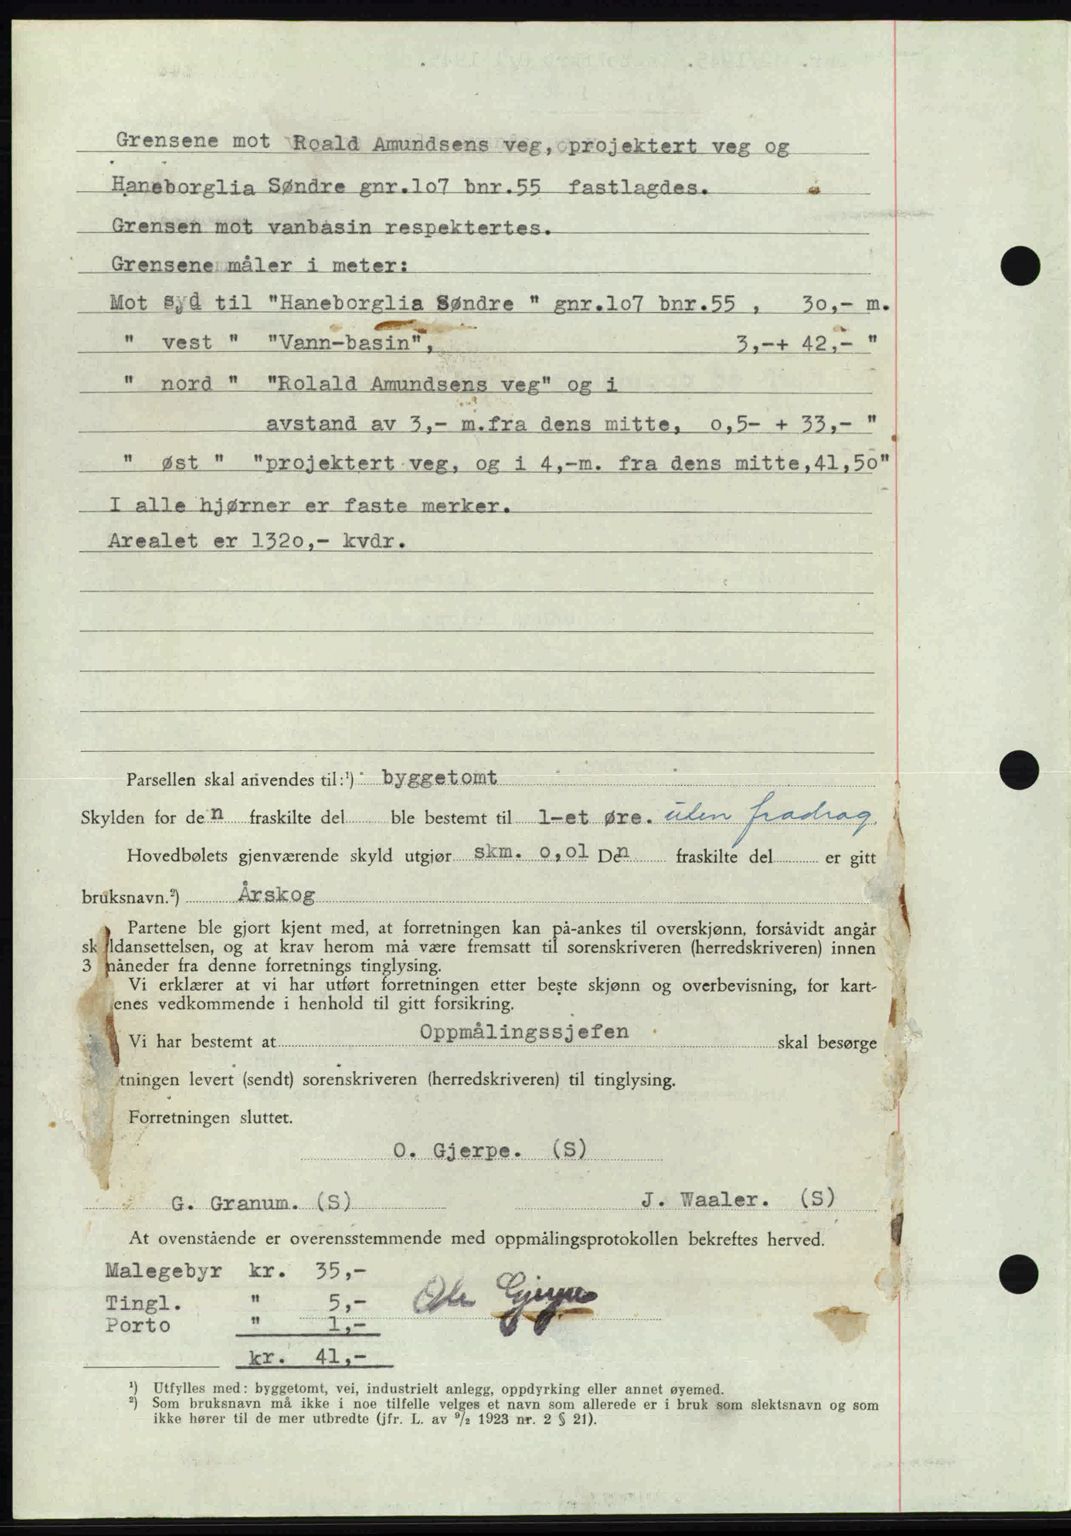 Grensene mot Roald Amundsens veg, projektert veg og
Haneborglia Søndre gnr.107 bnr.55 fastlagdes.
Grensen mot vanbasin respektertes.
Grensene måler i meter:
Mot syd til "Haneborglia Søndre " gnr.107 bnr.55 , 30,- m.
" vest " "Vann-basin", 3,-+ 42,- "
" nord " "Rolald Amundsens veg" og i
avstand av 3,- m.fra dens mitte, 0,5- + 33,- "
" øst " "projektert veg, og i 4,-m. fra dens mitte,41,50"
I alle hjørner er faste merker.
Arealet er 1320,- kvdr.
Parsellen skal anvendes til:¹) byggetomt
Skylden for den fraskilte del ble bestemt til 1-et øre. uten fradrag.
Hovedbølets gjenværende skyld utgjør skm. 0,01 Den fraskilte del er gitt
bruksnavn.²) Årskog
Partene ble gjort kjent med, at forretningen kan på-ankes til overskjønn, forsåvidt angår
sk ldansettelsen, og at krav herom må være fremsatt til sorenskriveren (herredskriveren) innen
3 måneder fra denne forretnings tinglysing.
Vi erklærer at vi har utført forretningen etter beste skjønn og overbevisning, for kart-
enes vedkommende i henhold til gitt forsikring.
Vi har bestemt at Oppmålingssjefen skal besørge
tningen levert (sendt) sorenskriveren (herredskriveren) til tinglysing.
Forretningen sluttet.
O. Gjerpe. (S)
G. Granum. (S) J. Waaler. (S)
At ovenstående er overensstemmende med oppmålingsprotokollen bekreftes herved.
Malegebyr kr. 35,-
Tingl. " 5,- Ole Gjerpe
Porto " 1,-
kr. 41,-
¹) Utfylles med: byggetomt, vei, industrielt anlegg, oppdyrking eller annet øyemed.
²) Som bruksnavn må ikke i noe tilfelle velges et navn som allerede er i bruk som slektsnavn og som
ikke hører til de mer utbredte (jfr. L. av 9/2 1923 nr. 2 § 21).